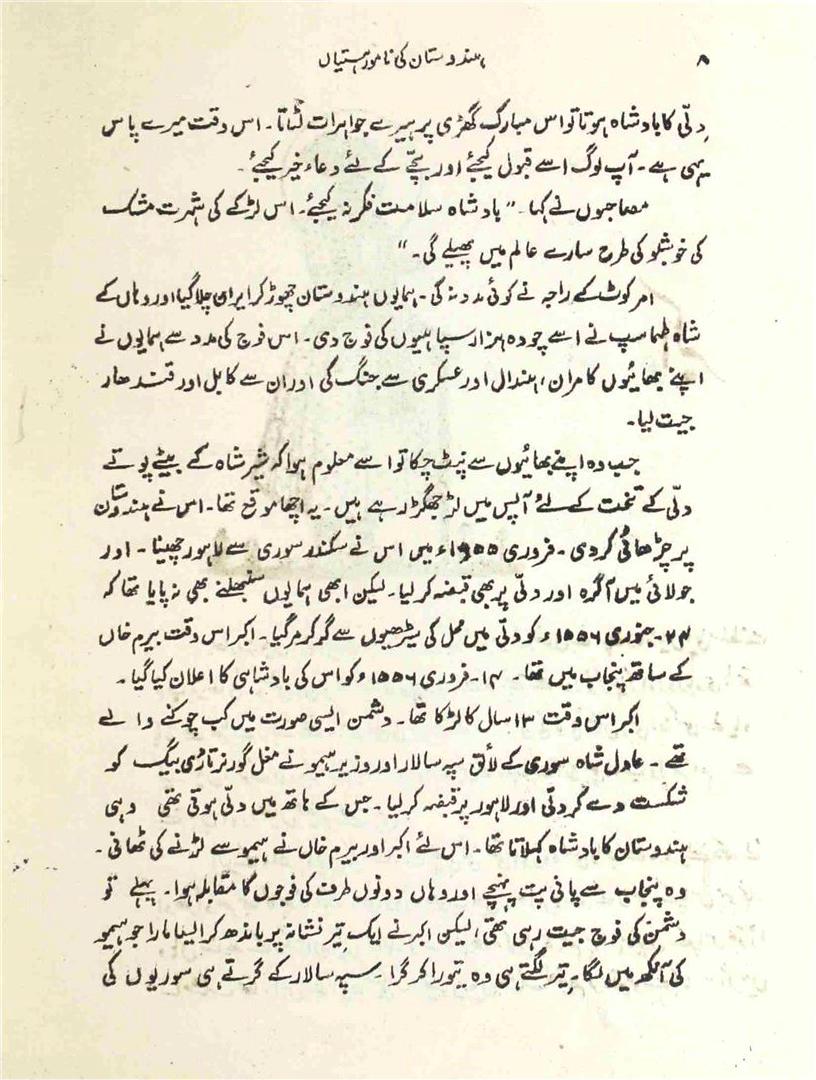 ۸ ہندوستان کی نامور ہستیاں
دلّی کا بادشاہ ہوتا تو اس مبارک گھڑی پر ہیرے جواہرات لٹاتا۔ اس وقت میرے پاس
یہی ہے۔ آپ لوگ اسے قبول کیجئے اور بچّے کے لئے دعاء خیر کیجئے۔
مصاحبوں نے کہا۔ "بادشاہ سلامت فکر نہ کیجئے۔ اس لڑکے کی شہرت مشک
کی خوشبو کی طرح سارے عالم میں پھیلے گی۔"
امر کوٹ کے راجہ نے کوئی مدد نہ کی۔ ہمایوں ہندوستان چھوڑ کر ایران چلا گیا اور وہاں کے
شاہ طہماسپ نے اسے چودہ ہزار سپاہیوں کی فوج دی۔ اس فوج کی مدد سے ہمایوں نے
اپنے بھائیوں کامران، ہندال اور عسکری سے جنگ کی اور ان سے کابل اور قندھار
جیت لیا۔
جب وہ اپنے بھائیوں سے نپٹ چکا تو اسے معلوم ہوا کہ شیر شاہ کے بیٹے پوتے
دلّی کے تخت کے لئے آپس میں لڑ جھگڑ رہے ہیں۔ یہ اچھا موقع تھا۔ اس نے ہندوستان
پر چڑھائی کردی۔ فروری ۱۵۵۵ء میں اس نے سکندر سوری سے لاہور چھینا۔ اور
جولائی میں آگرہ اور دلّی پر بھی قبضہ کر لیا۔ لیکن ابھی ہمایوں سنبھلنے بھی نہ پایا تھا کہ
۲۴۔ جنوری ۱۵۵۶ء کو دلّی میں محل کی سیڑھیوں سے گر کر مر گیا۔ اکبر اس وقت بیرم خاں
کے ساتھ پنجاب میں تھا۔ ۱۴۔ فروری ۱۵۵۶ء کو اس کی بادشاہی کا اعلان کیا گیا۔
اکبر اس وقت ۱۳ سال کا لڑکا تھا۔ دشمن ایسی صورت میں کب چوکنے والے
تھے۔ عادل شاہ سوری کے لائق سپہ سالار اور وزیر ہیمو نے مغل گورنر تارڑی بیگ کو
شکست دے کر دلّی اور لاہور پر قبضہ کر لیا۔ جس کے ہاتھ میں دلّی ہوتی تھی وہی
ہندوستان کا بادشاہ کہلاتا تھا۔ اس لئے اکبر اور بیرم خاں نے ہیمو سے لڑنے کی ٹھانی۔
وہ پنجاب سے پانی پت پہنچے اور وہاں دونوں طرف کی فوجوں کا مقابلہ ہوا۔ پہلے تو
دشمن کی فوج جیت رہی تھی، لیکن اکبر نے ایک تیر نشانہ پر باندھ کر ایسا مارا جو ہیمو
کی آنکھ میں لگا۔ تیر لگتے ہی وہ تیورا کر گرا۔ سپہ سالار کے گرتے ہی سوریوں کی